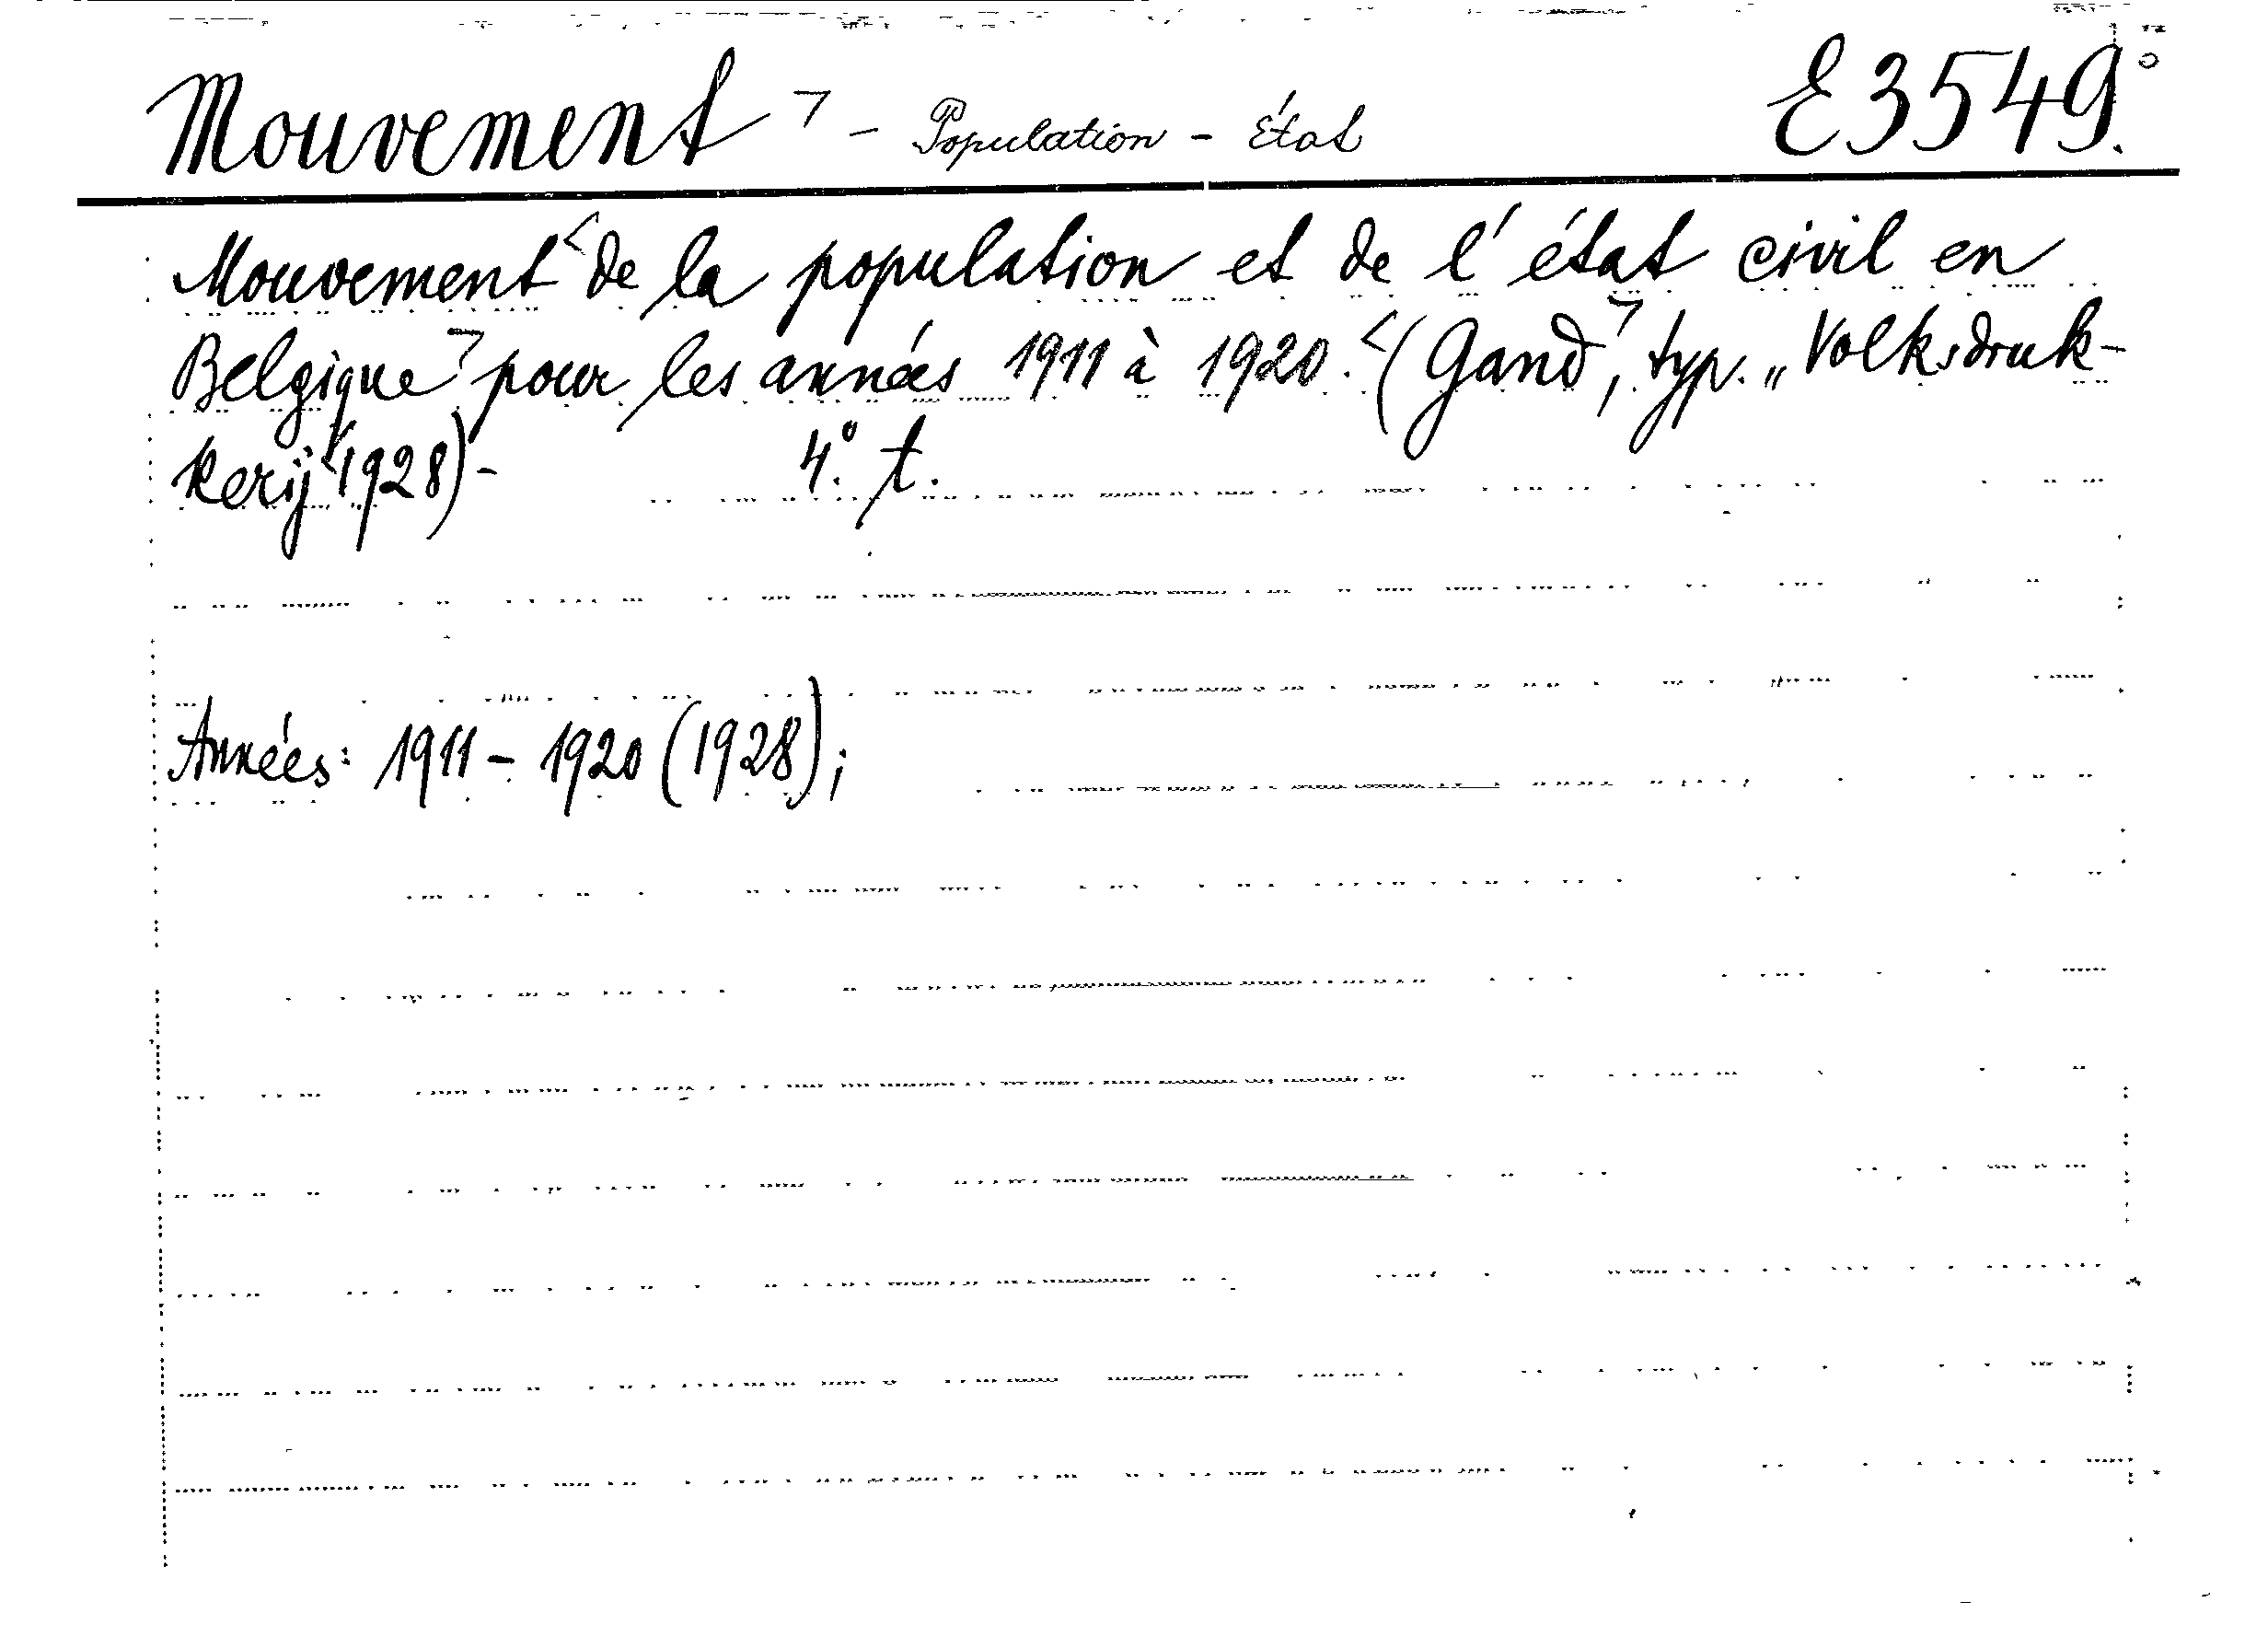 Mouvement ¬ - Population - État E3549.
Mouvement < de la population et de l'état civil en
Belgique ¬ pour les années 1911 à 1920. < (Gand ¬, typ. „Volksdruk-
kerij" < 1928) - 4.° t.
Années: 1911 - 1920 (1928);